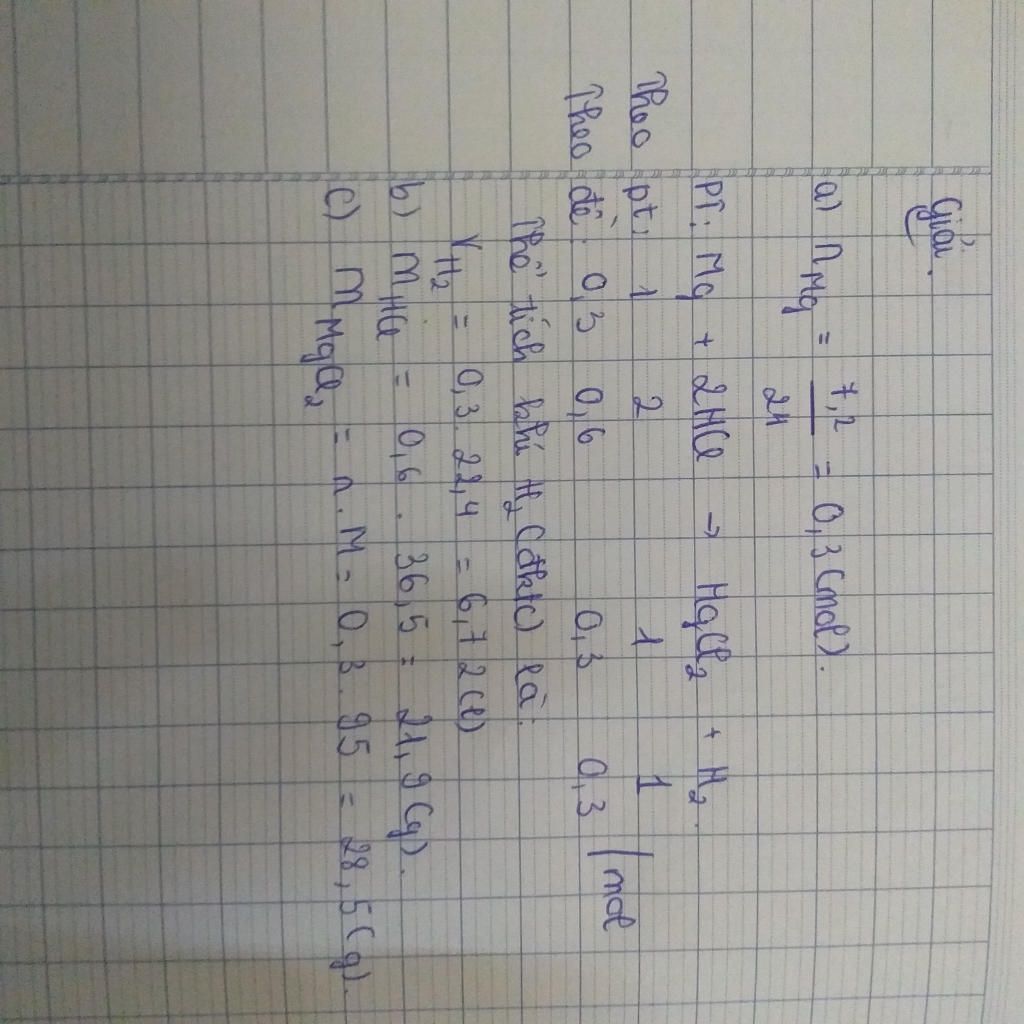 Giải.
a) nMg = 7,2/24 = 0,3 (mol).
PT: Mg + 2HCl → MgCl₂ + H₂.
Theo pt: 1 2 1 1
Theo đề: 0,3 0,6 0,3 0,3 / mol
Thể tích khí H₂ (đktc) là:
VH₂ = 0,3. 22,4 = 6,72 (l)
b) mHCl = 0,6 . 36,5 = 21,9 (g).
c) mMgCl₂ = n. M = 0,3. 95 = 28,5 (g).